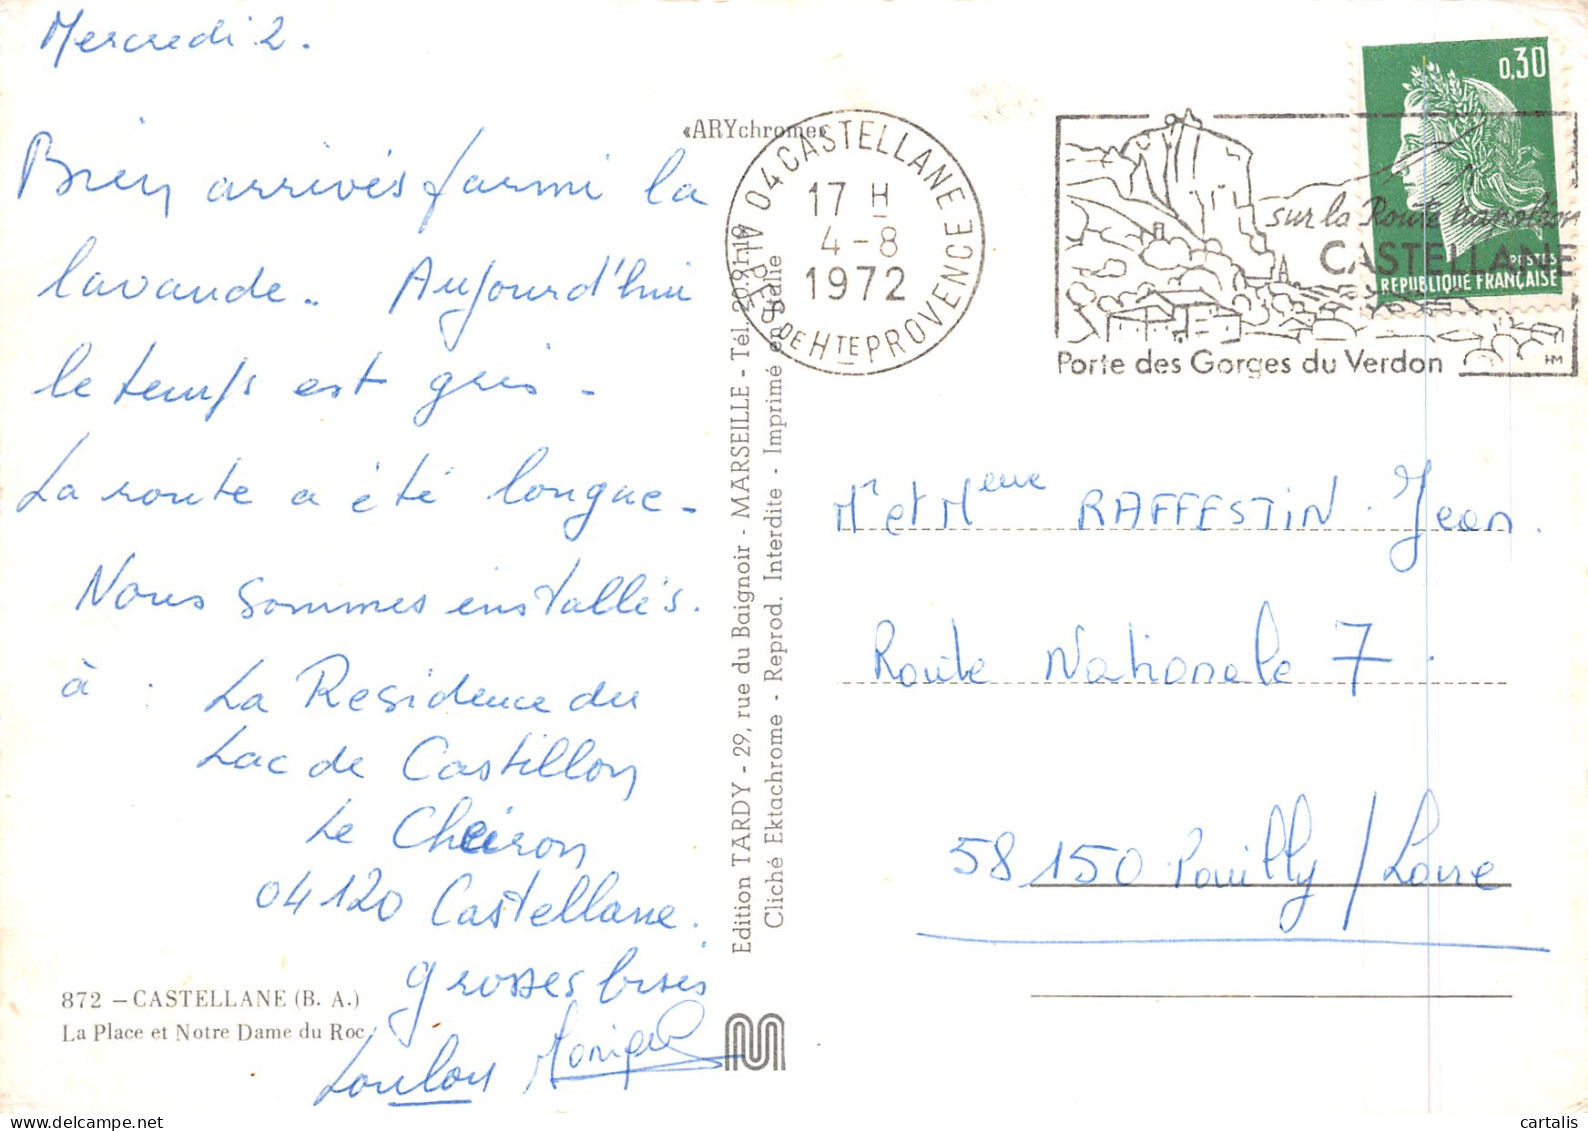 Mercredi 2.
Bien arrivés parmi la
lavande. Aujourd'hui
le temps est gris -
La route a été longue -
Nous sommes installés.
à :
La Residence du
Lac de Castillon
Le Cheiron
04120 Castellane.
grosses bises
Loulou Monique
872 - CASTELLANE (B. A.)
La Place et Notre Dame du Roc
«ARYchrome»
Edition TARDY - 29, rue du Baignoir - MARSEILLE - Tél. 20.91.19
Cliché Ektachrome - Reprod. Interdite - Imprimé en Italie
04 CASTELLANE
17 H
4-8
1972
ALPES DE HTE PROVENCE
sur la Route napoléon
CASTELLANE
Porte des Gorges du Verdon
HM
0,30
POSTES
REPUBLIQUE FRANÇAISE
Mr et Mme RAFFESTIN Jean.
Route Nationale 7.
58150 Pouilly/Loire
cartalis
www.delcampe.net